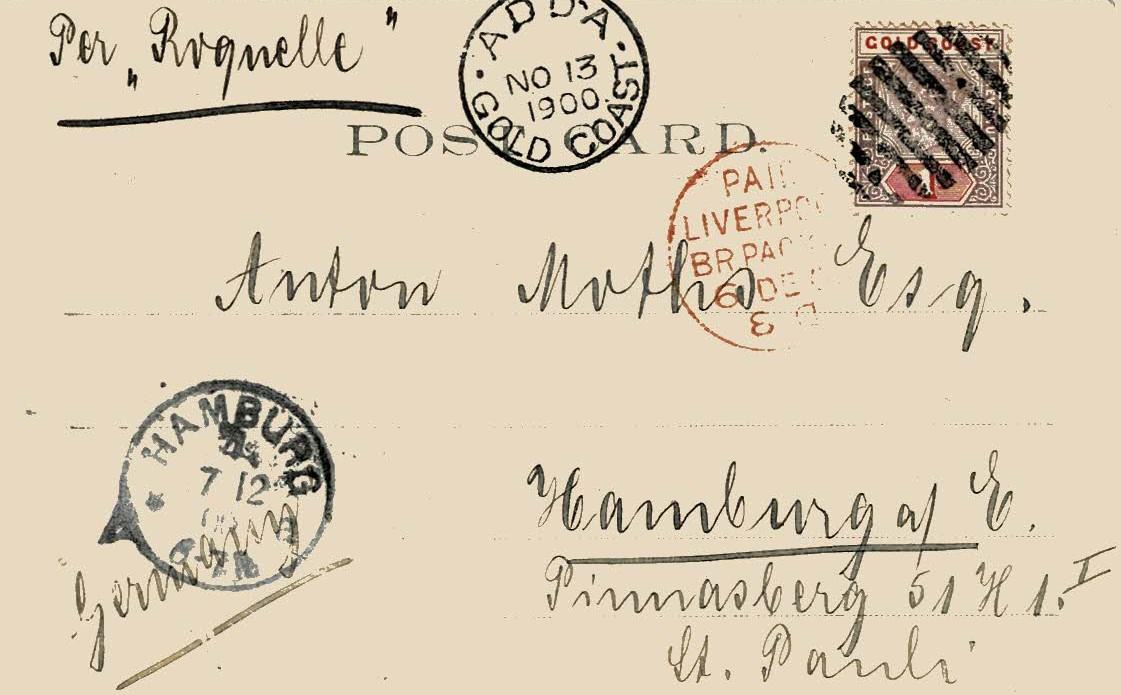 Per „Roquelle"
ADDA
NO 13
1900
GOLD COAST
GOLD COAST
POST CARD.
PAID
LIVERPO
BR PAC
6 DE
8
Anton Moths Esq.
HAMBURG
7 12
Germany
Hamburg a/ E.
Pinnasberg 51 H 1. I
St. Pauli